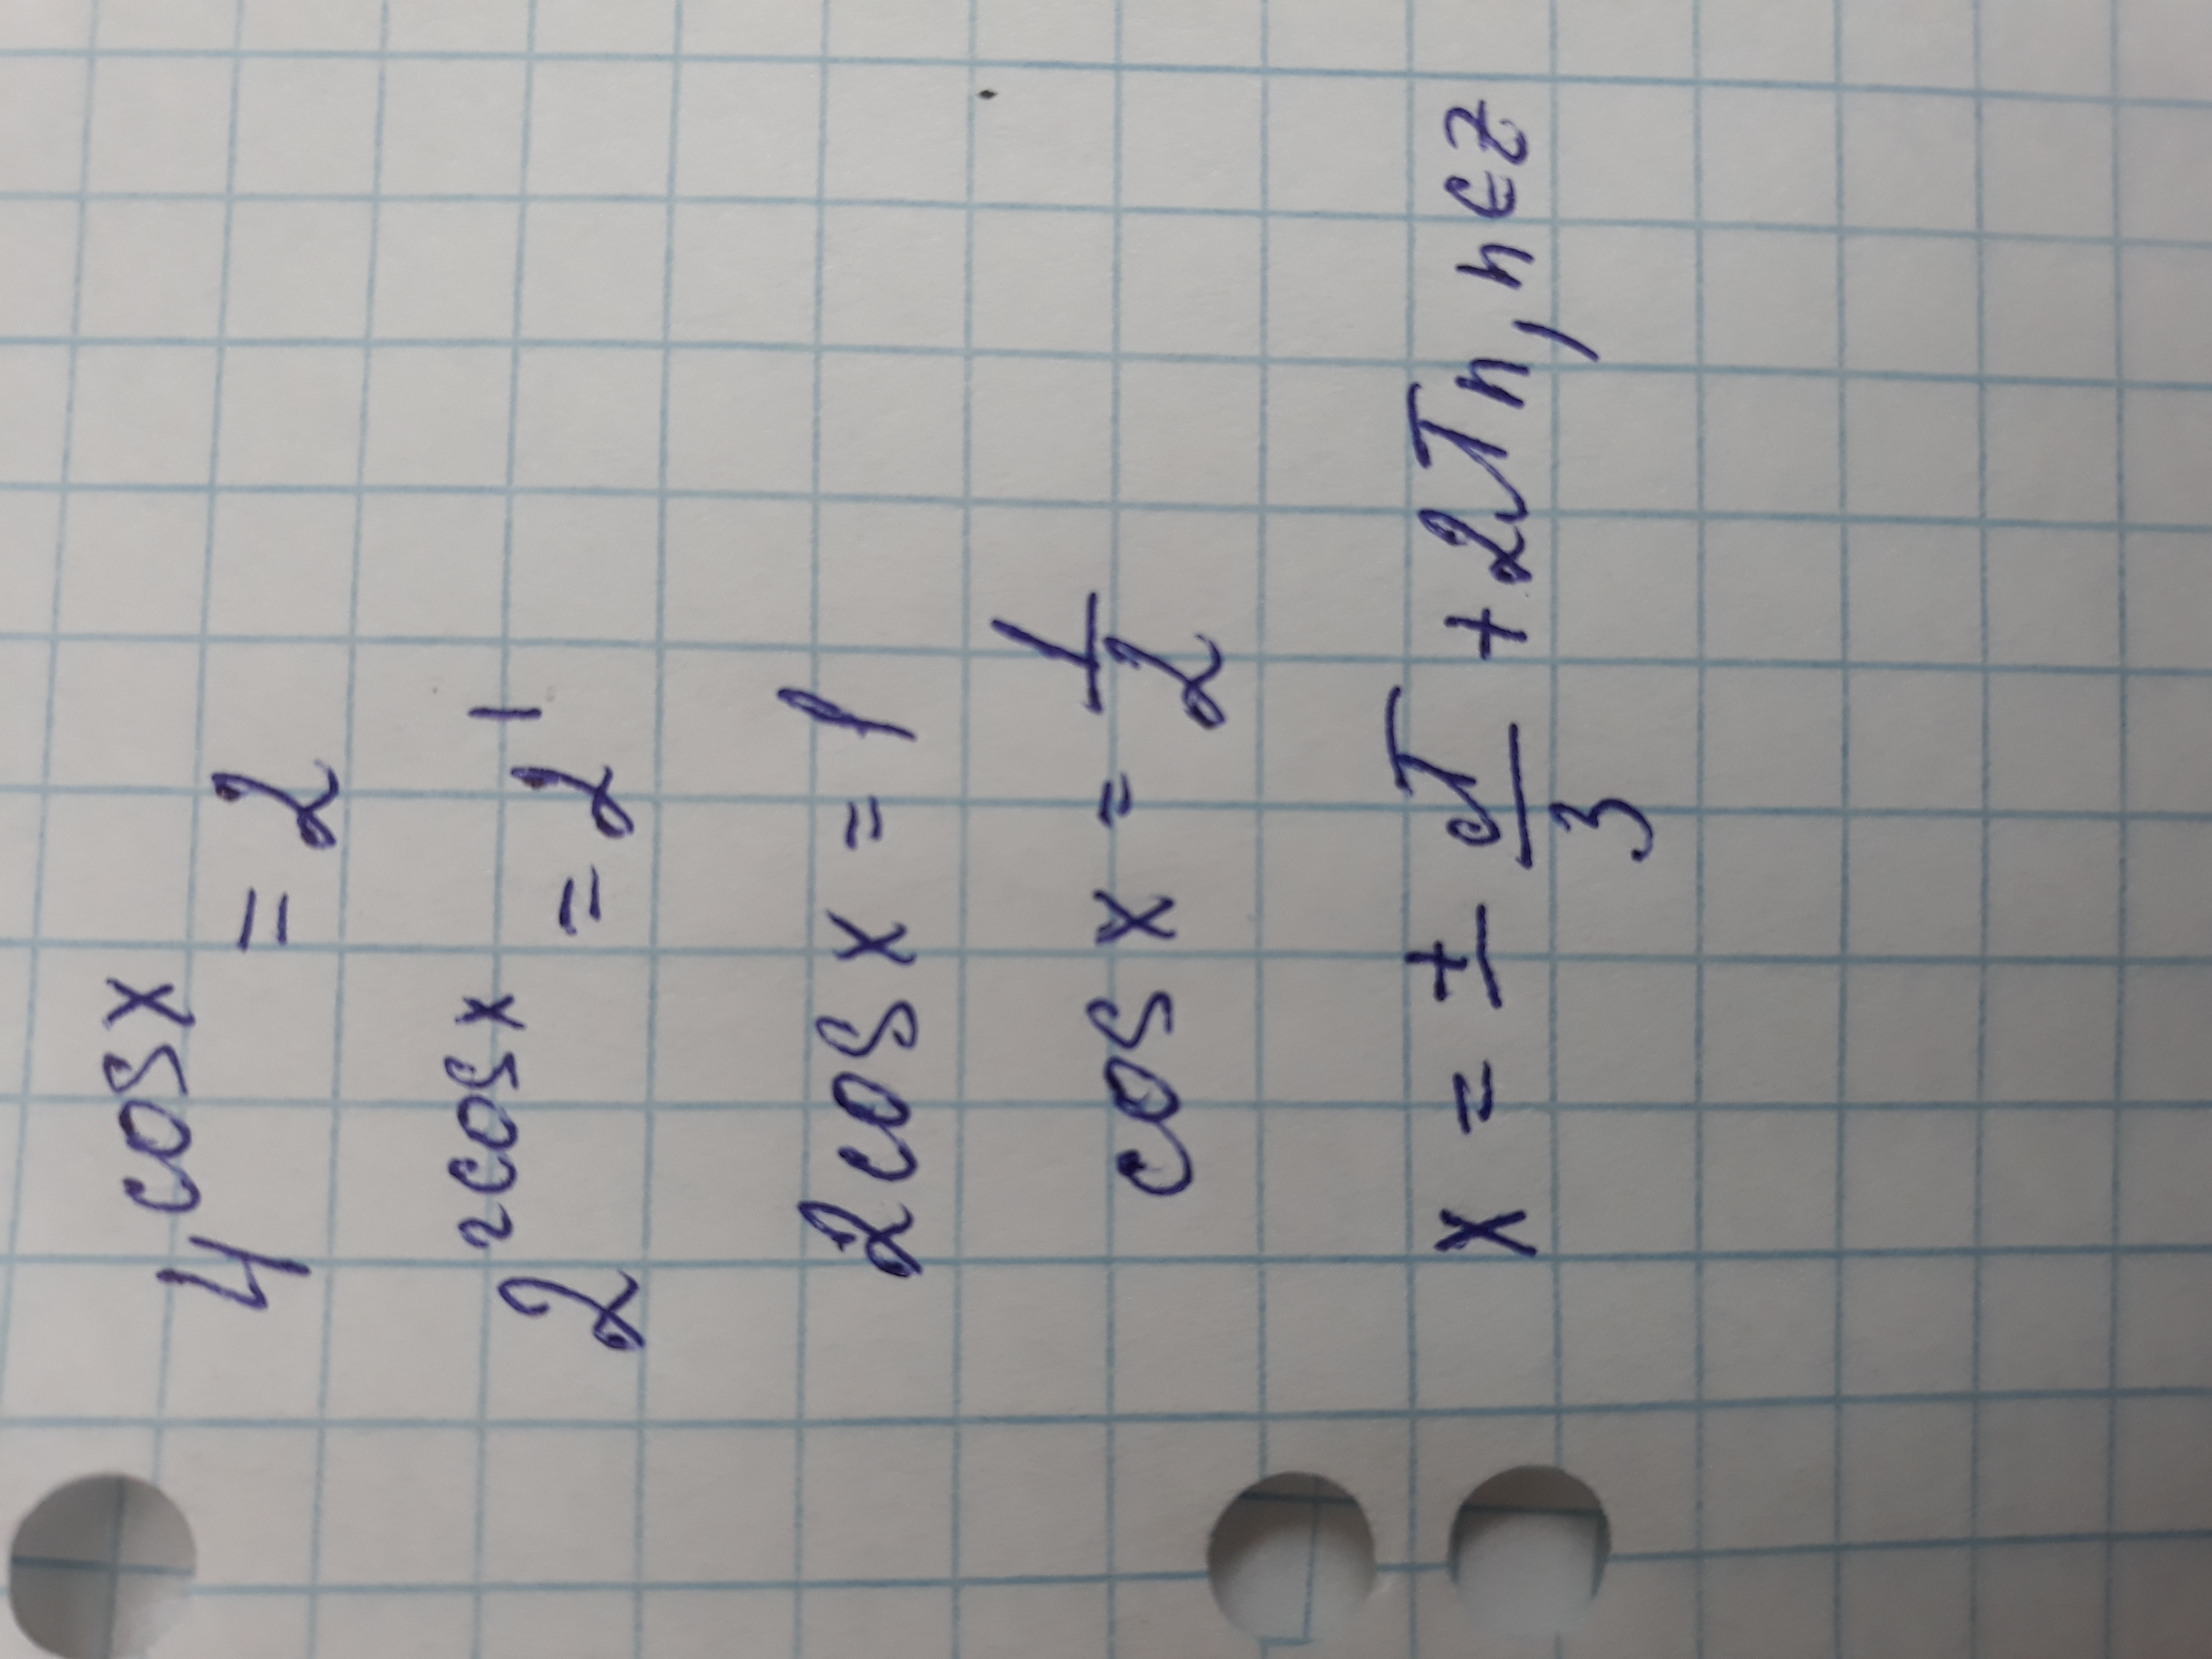 4^{cos x} = 2
2^{2cos x} = 2^1
2cos x = 1
cos x = \frac{1}{2}
x = ± \frac{π}{3} + 2πn, n ∈ Z